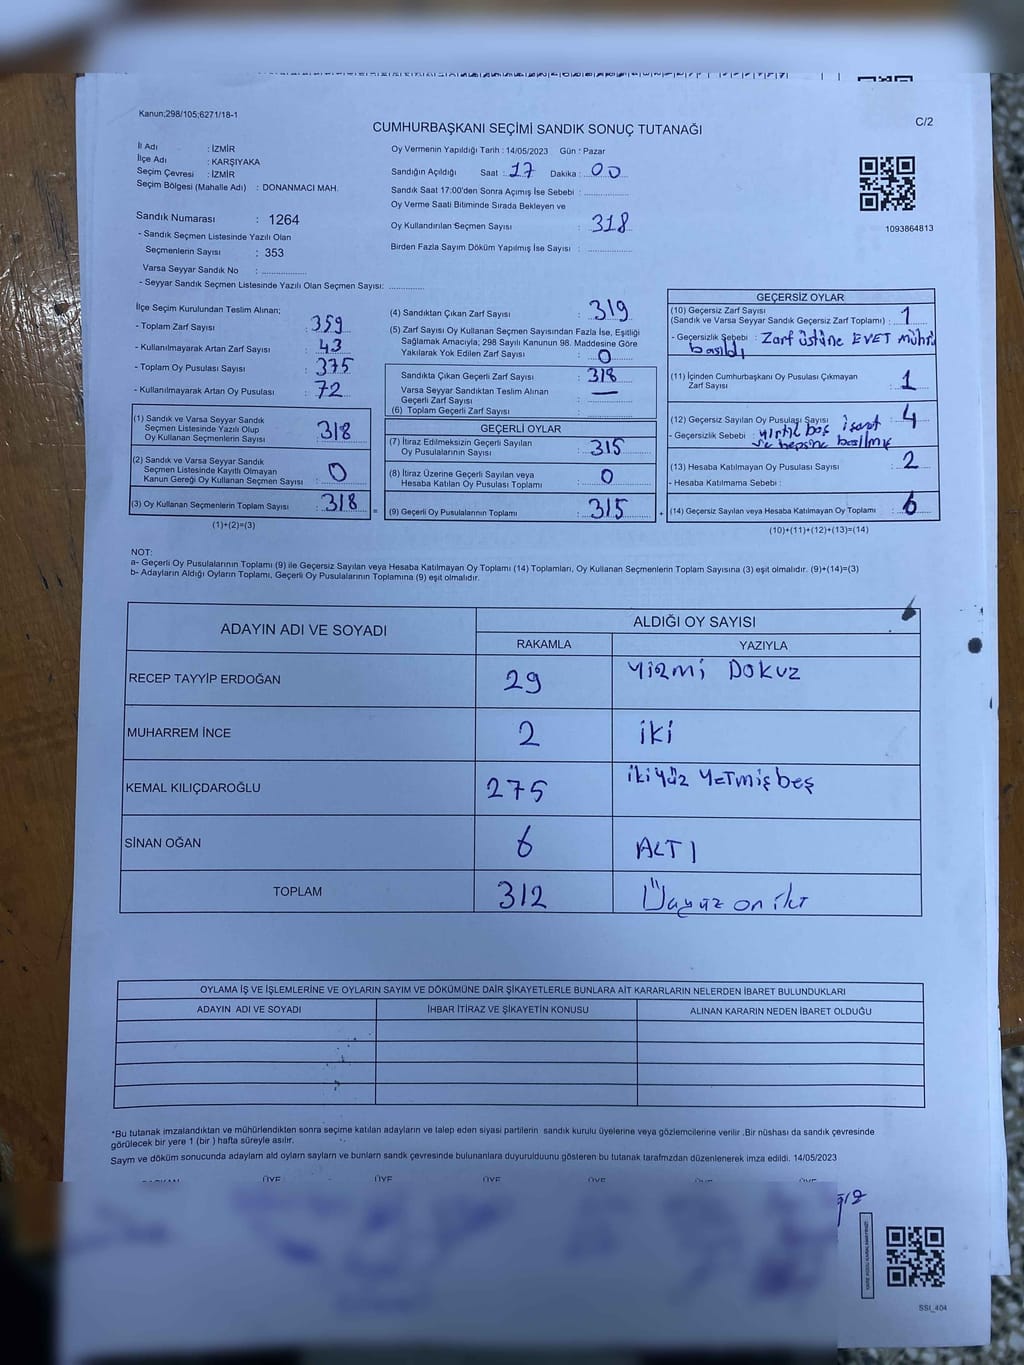 Kanun;298/105;6271/18-1
C/2
CUMHURBAŞKANI SEÇİMİ SANDIK SONUÇ TUTANAĞI
İl Adı : İZMİR
İlçe Adı : KARŞIYAKA
Seçim Çevresi : İZMİR
Seçim Bölgesi (Mahalle Adı) : DONANMACI MAH.
Oy Vermenin Yapıldığı Tarih : 14/05/2023 Gün : Pazar
Sandığın Açıldığı Saat : 17 Dakika : 00
Sandık Saat 17:00'den Sonra Açımış İse Sebebi :
Oy Verme Saati Bitiminde Sırada Bekleyen ve
Oy Kullandırılan Seçmen Sayısı : 318
Birden Fazla Sayım Döküm Yapılmış İse Sayısı :
1093864813
Sandık Numarası : 1264
- Sandık Seçmen Listesinde Yazılı Olan
Seçmenlerin Sayısı : 353
Varsa Seyyar Sandık No :
- Seyyar Sandık Seçmen Listesinde Yazılı Olan Seçmen Sayısı:
İlçe Seçim Kurulundan Teslim Alınan;
- Toplam Zarf Sayısı : 359
- Kullanılmayarak Artan Zarf Sayısı : 43
- Toplam Oy Pusulası Sayısı : 375
- Kullanılmayarak Artan Oy Pusulası : 72
(1) Sandık ve Varsa Seyyar Sandık
Seçmen Listesinde Yazılı Olup
Oy Kullanan Seçmenlerin Sayısı : 318
(2) Sandık ve Varsa Seyyar Sandık
Seçmen Listesinde Kayıtlı Olmayan
Kanun Gereği Oy Kullanan Seçmen Sayısı : 0
(3) Oy Kullanan Seçmenlerin Toplam Sayısı : 318 =
(1)+(2)=(3)
(4) Sandıktan Çıkan Zarf Sayısı : 319
(5) Zarf Sayısı Oy Kullanan Seçmen Sayısından Fazla İse, Eşitliği
Sağlamak Amacıyla; 298 Sayılı Kanunun 98. Maddesine Göre
Yakılarak Yok Edilen Zarf Sayısı : 0
Sandıkta Çıkan Geçerli Zarf Sayısı : 318
Varsa Seyyar Sandıktan Teslim Alınan
Geçerli Zarf Sayısı : —
(6) Toplam Geçerli Zarf Sayısı :
GEÇERLİ OYLAR
(7) İtiraz Edilmeksizin Geçerli Sayılan
Oy Pusulalarının Sayısı : 315
(8) İtiraz Üzerine Geçerli Sayılan veya
Hesaba Katılan Oy Pusulası Toplamı : 0
(9) Geçerli Oy Pusulalarının Toplamı : 315 +
GEÇERSİZ OYLAR
(10) Geçersiz Zarf Sayısı
(Sandık ve Varsa Seyyar Sandık Geçersiz Zarf Toplamı) : 1
- Geçersizlik Sebebi : Zarf üstüne EVET mührü
basıldı
(11) İçinden Cumhurbaşkanı Oy Pusulası Çıkmayan
Zarf Sayısı : 1
(12) Geçersiz Sayılan Oy Pusulası Sayısı : 4
- Geçersizlik Sebebi : yırtık boş işaret
ve hepsine basılmış
(13) Hesaba Katılmayan Oy Pusulası Sayısı : 2
- Hesaba Katılmama Sebebi :
(14) Geçersiz Sayılan veya Hesaba Katılmayan Oy Toplamı : 6
(10)+(11)+(12)+(13)=(14)
NOT:
a- Geçerli Oy Pusulalarının Toplamı (9) ile Geçersiz Sayılan veya Hesaba Katılmayan Oy Toplamı (14) Toplamları, Oy Kullanan Seçmenlerin Toplam Sayısına (3) eşit olmalıdır. (9)+(14)=(3)
b- Adayların Aldığı Oyların Toplamı, Geçerli Oy Pusulalarının Toplamına (9) eşit olmalıdır.
ADAYIN ADI VE SOYADI
ALDIĞI OY SAYISI
RAKAMLA YAZIYLA
RECEP TAYYİP ERDOĞAN 29 YİRMİ DOKUZ
MUHARREM İNCE 2 İKİ
KEMAL KILIÇDAROĞLU 275 İkiyüz YETMİŞ beş
SİNAN OĞAN 6 ALTI
TOPLAM 312 Üçyüz on iki
OYLAMA İŞ VE İŞLEMLERİNE VE OYLARIN SAYIM VE DÖKÜMÜNE DAİR ŞİKAYETLERLE BUNLARA AİT KARARLARIN NELERDEN İBARET BULUNDUKLARI
ADAYIN ADI VE SOYADI İHBAR İTİRAZ VE ŞİKAYETİN KONUSU ALINAN KARARIN NEDEN İBARET OLDUĞU
*Bu tutanak imzalandıktan ve mühürlendikten sonra seçime katılan adayların ve talep eden siyasi partilerin sandık kurulu üyelerine veya gözlemcilerine verilir .Bir nüshası da sandık çevresinde
görülecek bir yere 1 (bir ) hafta süreyle asılır.
Saym ve döküm sonucunda adaylarn ald oylarn saylarn ve bunlarn sandk çevresinde bulunanlara duyurulduunu gösteren bu tutanak tarafmzdan düzenlenerek imza edildi. 14/05/2023
BAŞKAN ÜYE ÜYE ÜYE ÜYE ÜYE ÜYE
SSI_404